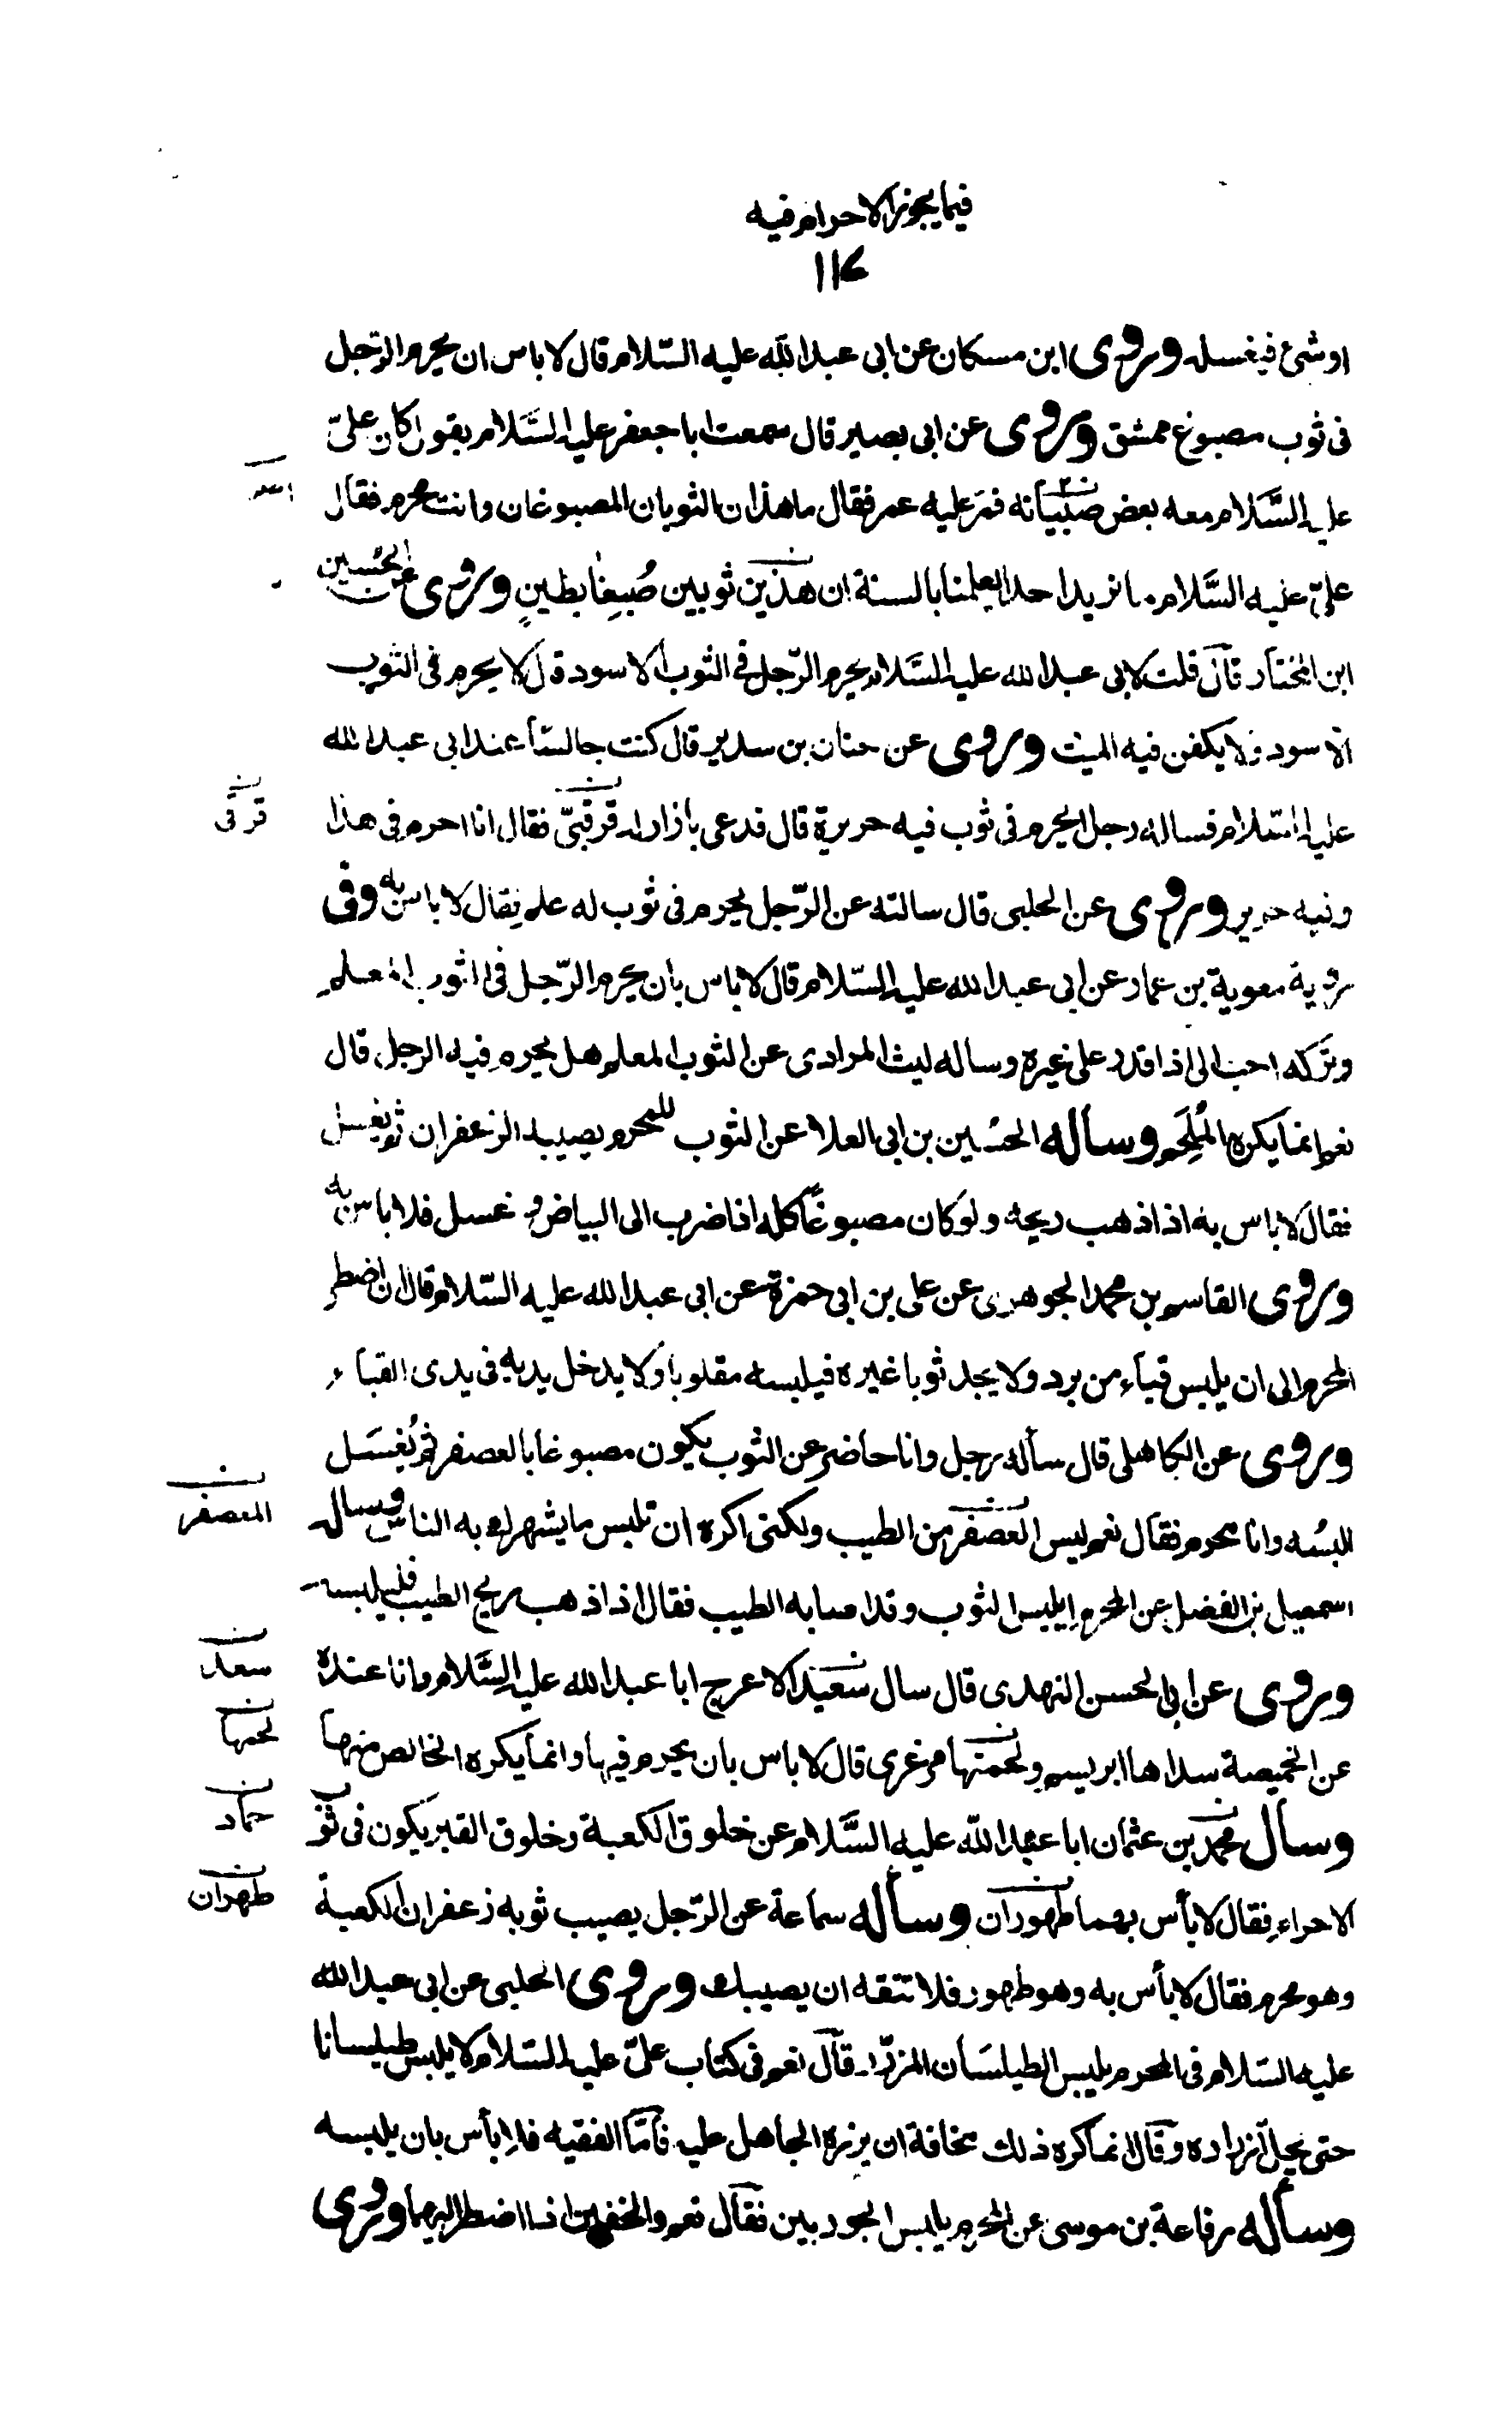 فيما يجوز الاحرام فيه
١١٤
او شئ فيغسله وروى ابن مسكان عن ابى عبد الله عليه السّلام قال لا باس ان يحرم الرّجل
فى ثوب مصبوغ ممشق وروى عن ابى بصير قال سمعت ابا جعفر عليه السَّلام يقول كان علىّ
عليه السَّلام معه بعض صبيانه فمرّ عليه عمر فقال ما هذان الثوبان المصبوغان وانت محرم فقال
علىّ عليه السَّلام ما نريد احدا يعلمنا بالسنة ان هذين ثوبين صُبِغا بطينٍ وروى عن الحُسين
ابن المختار قال قلت لابى عبد الله عليه السَّلام يحرم الرّجل فى الثوب الاسود قال لا يحرم فى الثوب
الاسود ولا يكفن فيه الميت وروى عن حنان بن سدير قال كنت جالسًا عند ابى عبد الله
عليه السّلام فساله رجل ايحرم فى ثوب فيه حريرة قال فدعى بازار له قرقبىّ فقال انا احرم فى هذا
قرقى
وفيه حرير وروى عن الحلبى قال سالته عن الرّجل يحرم فى ثوب له علم فقال لا باس به وفى
رواية معوية بن عمار عن ابى عبد الله عليه السّلام قال لا باس بان يحرم الرّجل فى الثوب المعلم
وتركه احب الى اذا قدر على غيره وساله ليث المرادى عن الثوب المعلم هل يحرم فيه الرجل قال
نعم انما يكره المُلحَم وسأله الحسين بن ابى العلا عن الثوب للمحرم يصيبه الزعفران ثم يغسل
فقال لا باس به اذا ذهب ريحه ولو كان مصبوغًا كله اذا ضرب الى البياض و غسل فلا باس به
وروى القاسم بن محمد الجوهرى عن على بن ابى حمزة عن ابى عبد الله عليه السّلام قال ان اضطر
المحرم الى ان يلبس قباء من برد ولا يجد ثوبا غيره فيلبسه مقلوبا ولا يدخل يديه فى يدى القباء
وروى عن الكاهلى قال سأله رجل وانا حاضر عن الثوب يكون مصبوغا بالعصفر ثم يُغسَل
البسُه وانا محرم فقال نعم ليس العصفر من الطيب ولكنى اكره ان تلبس ما يشهرك به الناس وسال
المعصفر
اسمعيل بن الفضل عن المحرم ايلبس الثوب وقد اصابه الطيب فقال اذا ذهب ريح الطيب فليلبسه
وروى عن ابى الحسن النهدى قال سال سَعيد الاعرج ابا عبد الله عليه السَّلام وانا عنده
سعد
عن الخميصة سداها ابريسم ولحمتها مرغرى قال لا باس بان يحرم فيها وانما يكره الخالص منها
لحمها
وسأل محمّد بن عثمان ابا عبد اللّه عليه السَّلام عن خلوق الكعبة وخلوق القبر يكون فى ثوب
حماد
الاحرام فقال لا بأس بهما طهوران وسأله سماعة عن الرّجل يصيب ثوبه زعفران الكعبة
طهران
وهو محرم فقال لا بأس به وهو طهور فلا تتقه ان يصيبك وروى الحلبى عن ابى عبد الله
عليه السّلام فى المحرم يلبس الطيلسَان المزرّر قال نعم فى كتاب علىّ عليه السّلام لا يلبس طيلسانا
حتى يحلّ ازراره وقال انما كره ذلك مخافة ان يزره الجاهل عليه فامّا الفقيه فلا بأس بان يلبسه
وسأله رفاعة بن موسى عن المحرم يلبس الجوربين فقال نعم والخفين اذا اضطر اليهما وروى